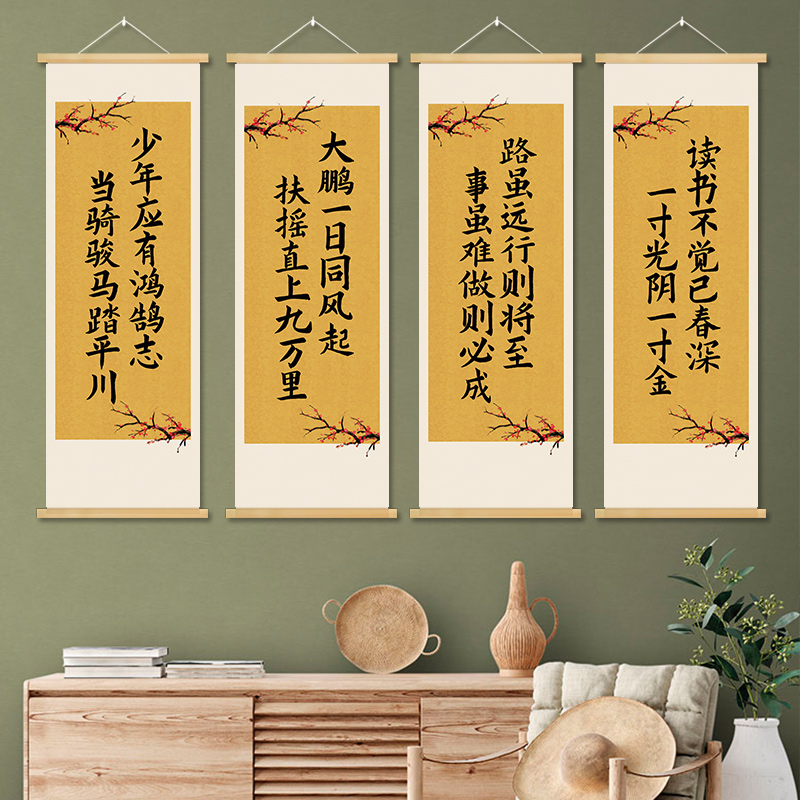 少年应有鸿鹄志
当骑骏马踏平川
大鹏一日同风起
扶摇直上九万里
路虽远行则将至
事虽难做则必成
读书不觉已春深
一寸光阴一寸金